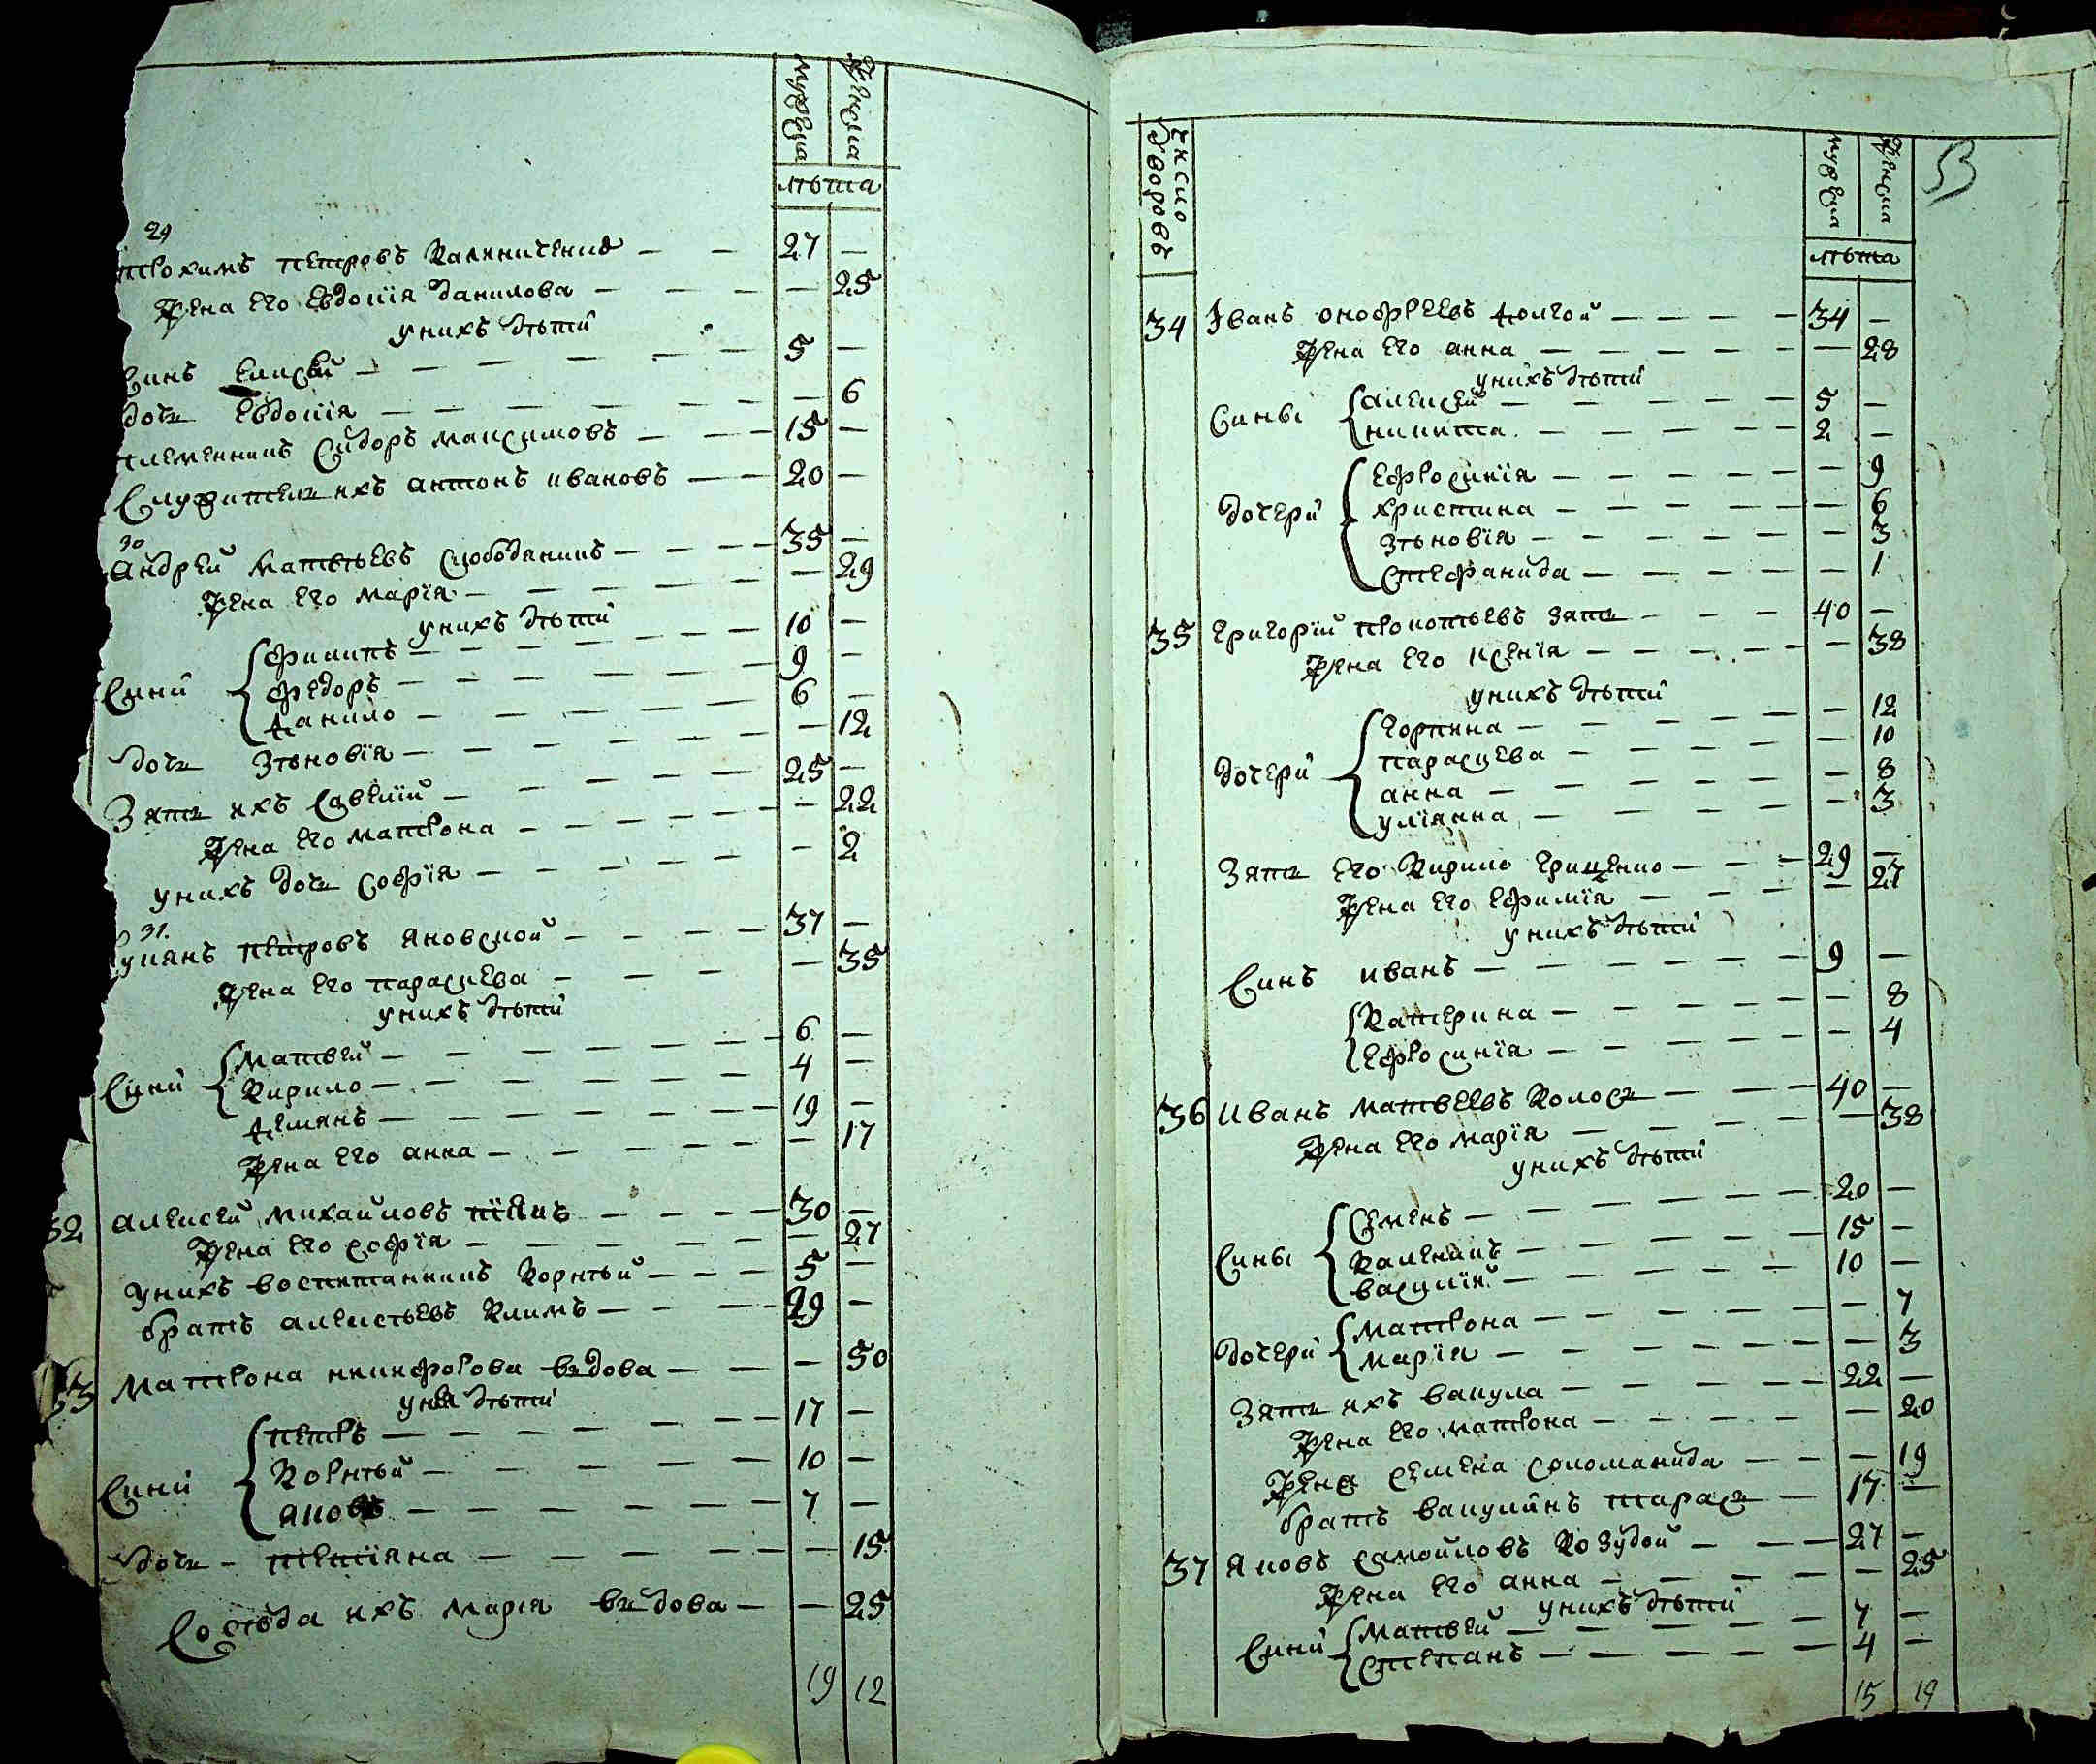 мужеска женска
лѣта
29
трохимъ петровъ Калиниченко — — 27 —
жена его Евдокія данилова — — — — 25
унихъ дѣти
Синъ Елисѣй — — — — — 5 —
дочь Евдокія — — — — — — 6
племенникъ Сидоръ максимовъ — — — 15 —
Служитель ихъ антонъ ивановъ — — 20 —
30
андрей матвѣевъ слободяникъ — — — 35 —
жена его марія — — — — — 29
унихъ дѣти
Сини { филипъ — — — — — 10 —
федоръ — — — — — 9 —
данило — — — — — 6 —
дочь зѣновія — — — — — 12
Зять ихъ Савелій — — — — 25 —
жена его матрона — — — — — 22
унихъ дочь софія — — — — — 2
31.
Лукянъ петровъ яновской — — — — 37 —
жена его параскева — — — — 35
унихъ дѣти
Сини { матвей — — — — — 6 —
Кирило — — — — — 4 —
демянъ — — — — — 19 —
жена его анна — — — — — 17
32 алексей михайловъ — — — — 30 —
жена его софія — — — — — 27
унихъ воспитанникъ Корнѣй — — — 5 —
братъ алексѣевъ Климъ — — — 29 —
33 матрона никифорова вдова — — — 50
унея дѣти
Сини { петръ — — — — — 17 —
Корнѣй — — — — — 10 —
яковъ — — — — — 7 —
дочь – тетіяна — — — — — 15
Сосѣда ихъ марія вдова — — 25
19 12
53
число дворовъ
мужеска женска
лѣта
34 Іванъ онофреевъ долгой — — — — 34 —
жена его анна — — — — — 28
унихъ дѣти
Сины { алексей — — — — — 5 —
никита — — — — — 2 —
дочери { Ефросинія — — — — — 9
христина — — — — — 6
зѣновія — — — — — 3
стефанида — — — — — 1
35 григорій прокопѣевъ зять — — — 40 —
жена его ксенія — — — — — 38
унихъ дѣти
дочери { горпина — — — — — 12
параскева — — — — — 10
анна — — — — — 8
уліянна — — — — — 3
Зять его Кирило гриценко — — — 29 —
жена его Ефимія — — — — 27
унихъ дѣти
Синъ иванъ — — — — — 9 —
{ Катерина — — — — — 8
Ефросинія — — — — — 4
36 иванъ матвеевъ Колось — — — 40 —
жена его марія — — — — — 38
унихъ дѣти
Сины { Семенъ — — — — — 20 —
Каленикъ — — — — — 15 —
василій — — — — — 10 —
дочери { матрона — — — — — 7
марія — — — — — 3
Зять ихъ вакула — — — — 22 —
жена его матрона — — — — — 20
жена семена соломанида — — — 19
братъ вакулинъ тарась — 17 —
37 яковъ самойловъ Козудой — — — 27 —
жена его анна — — — — — 25
унихъ дѣти
Сини { матвѣй — — — — — 7 —
степанъ — — — — — 4 —
15 19